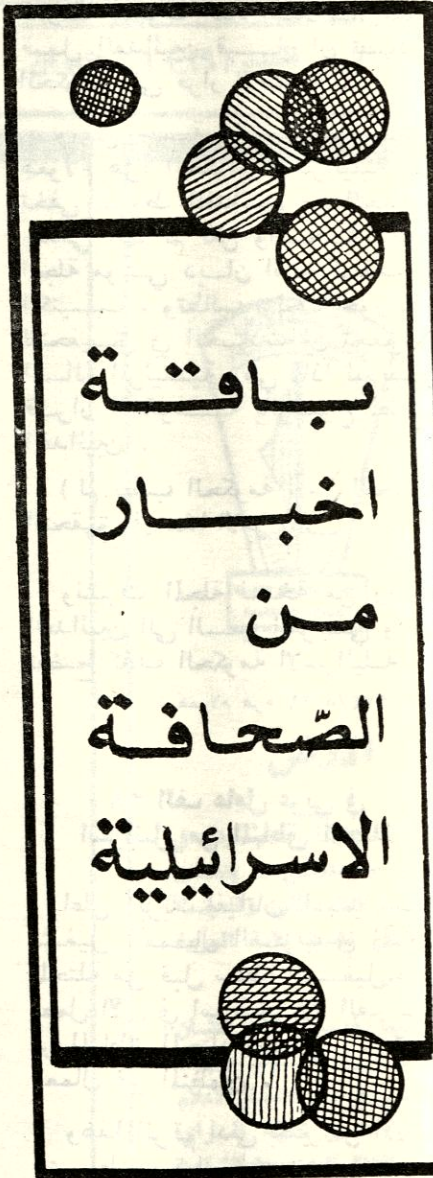 باقة
اخبار
من
الصّحافة
الاسرائيلية